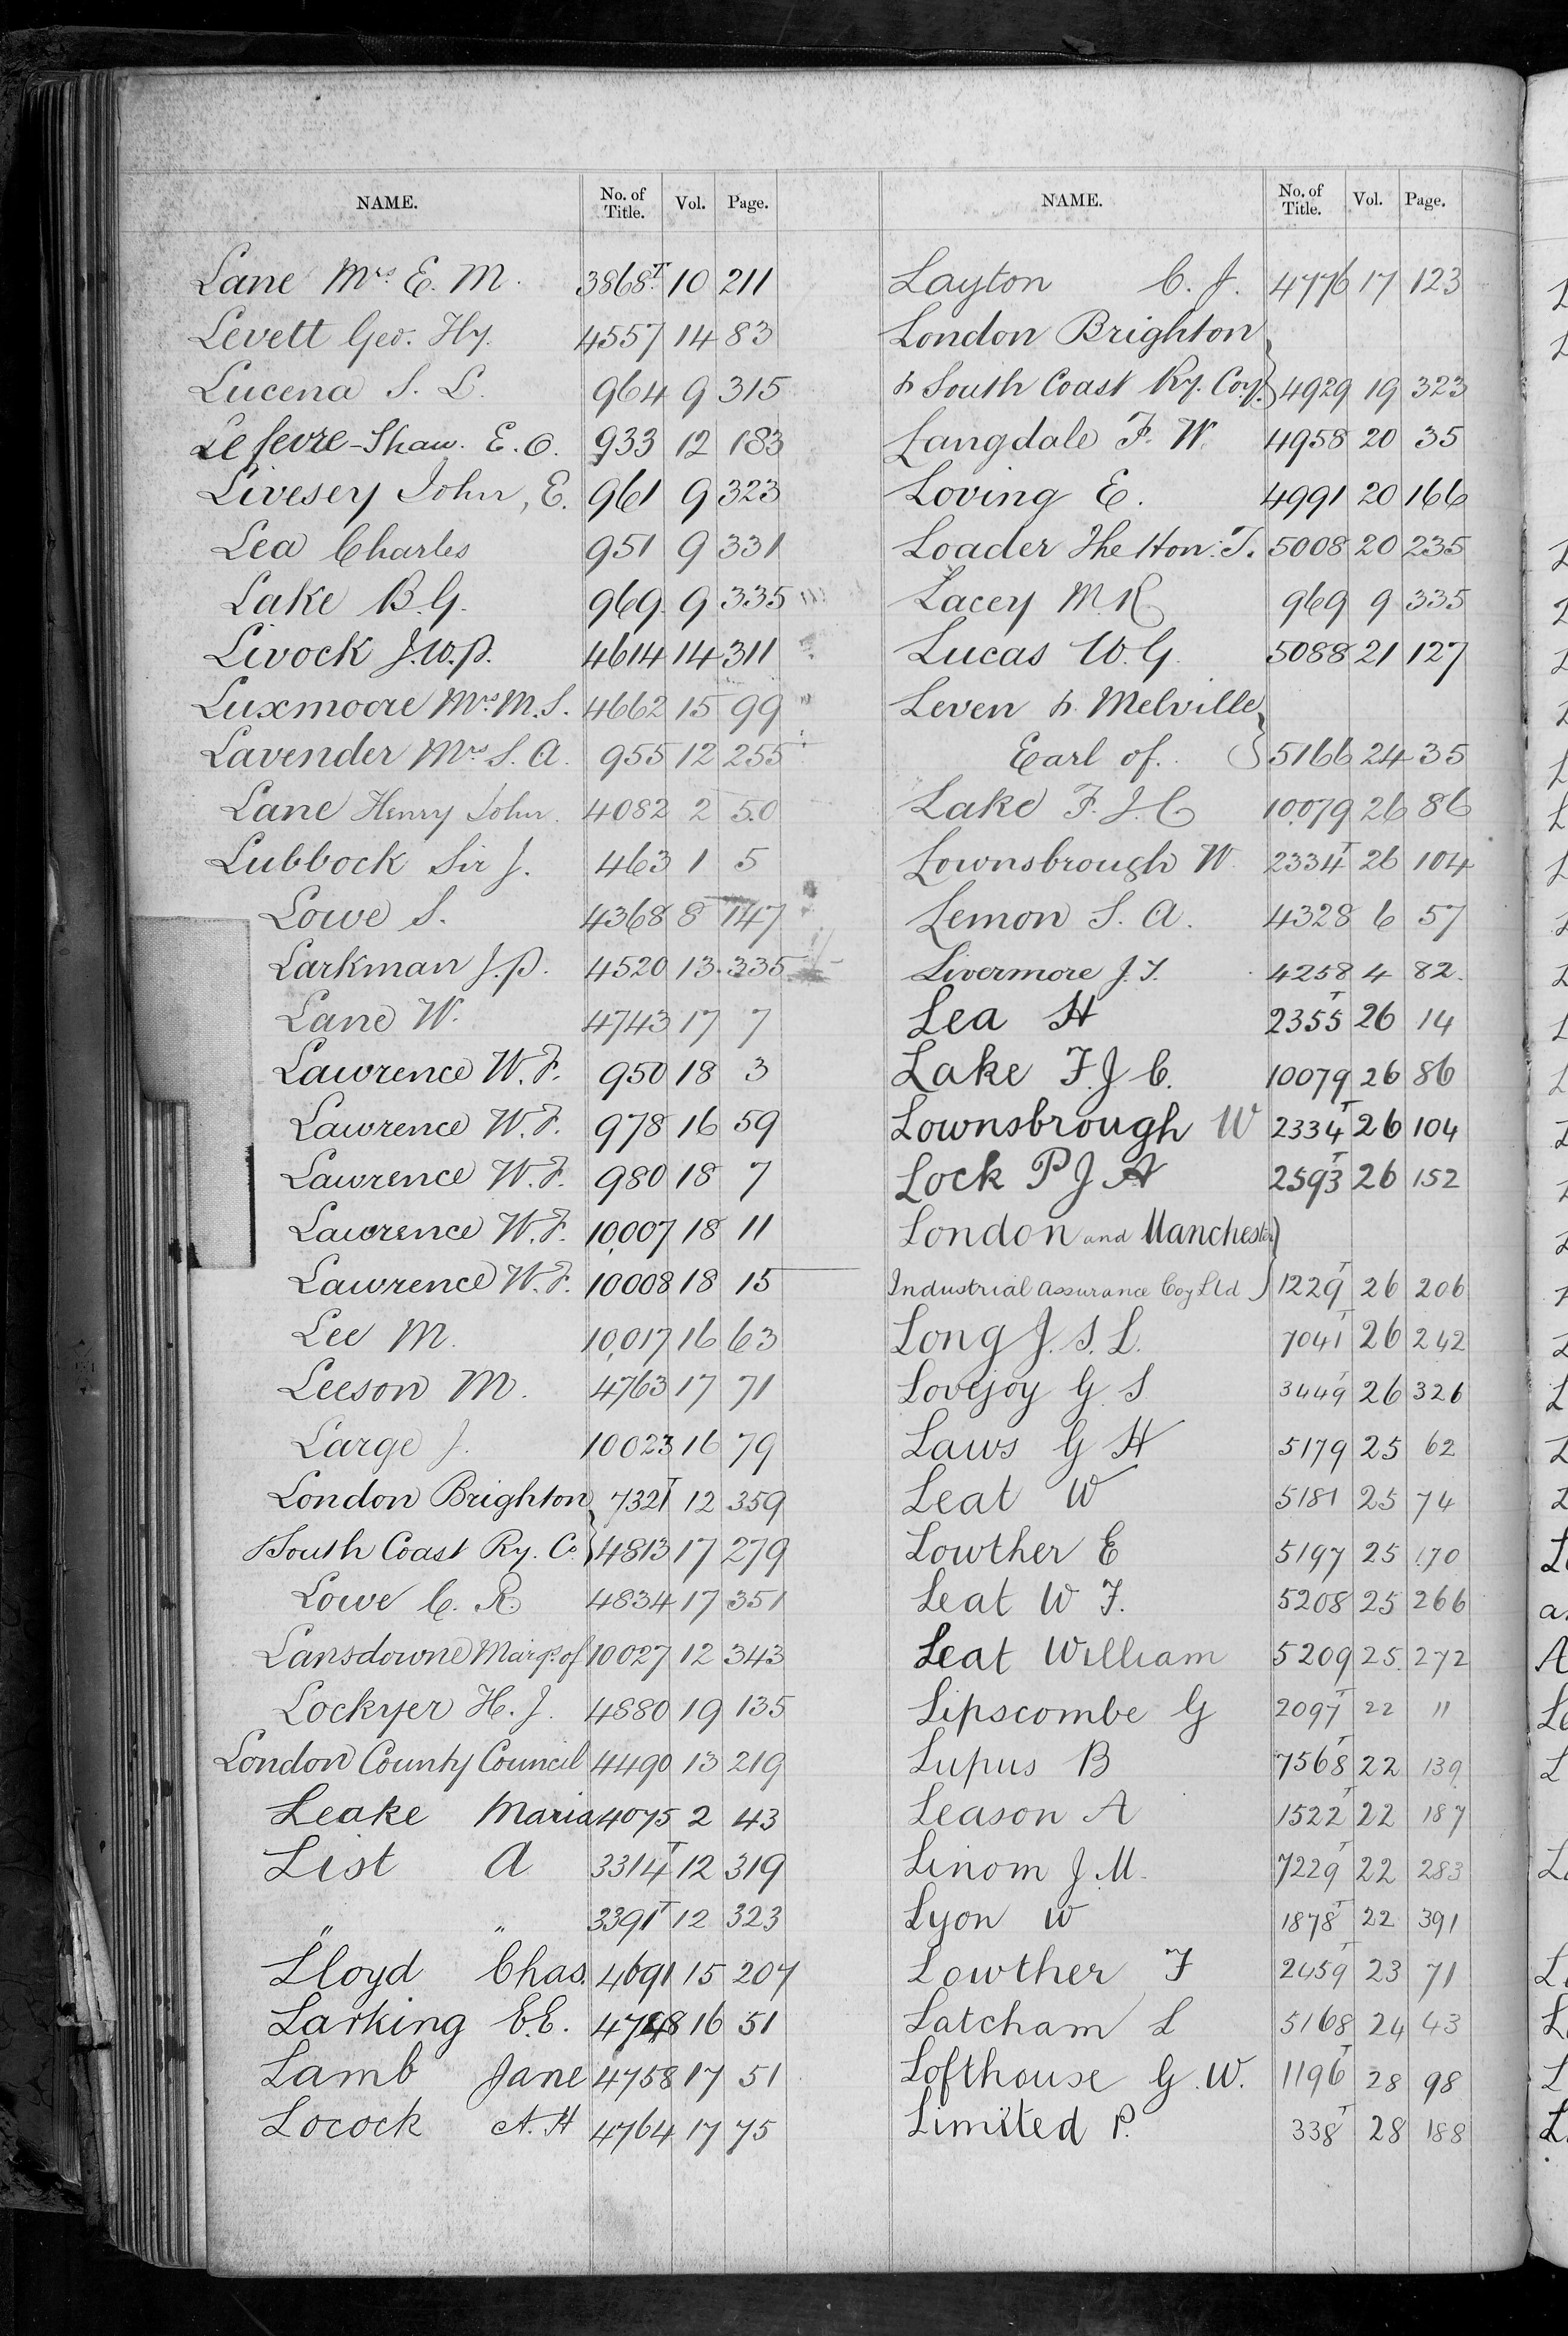 NAME. No. of Title. Vol. Page.
Lane Mrs. E. M. 3868T 10 211
Levett Geo. Hy. 4557 14 83
Lucena S. L. 964 9 315
Lefevre-Shaw. E. O. 933 12 183
Livesey John, E. 961 9 323
Lea Charles 951 9 331
Lake B. G. 969 9 335
Livock J. W. P. 4614 14 311
Luxmoore Mrs. M. S. 4662 15 99
Lavender Mrs S. A. 955 12 255
Lane Henry John. 4082 2 50
Lubbock Sir J. 463 1 5
Lowe S. 4368 8 147
Larkman J. P. 4520 13 335
Lane W. 4743 17 7
Lawrence W. F. 950 18 3
Lawrence W. F. 978 16 59
Lawrence W. F. 980 18 7
Lawrence W. F. 10,007 18 11
Lawrence W. F. 10008 18 15
Lee M. 10,017 16 63
Leeson M. 4763 17 71
Large J. 10023 16 79
London Brighton 732T 12 359
& South Coast Ry. Co. } 4813 17 279
Lowe C. R. 4834 17 351
Lansdowne Marqs. of 10027 12 343
Lockyer H. J. 4880 19 135
London County Council 4490 13 219
Leake Maria 4075 2 43
List A 3314T 12 319
" " 3391T 12 323
Lloyd Chas. 4691 15 207
Larking E. E. 16 51
Lamb Jane 4758 17 51
Locock A. H 4764 17 75
NAME. No. of Title. Vol. Page.
Layton C. J. 4776 17 123
London Brighton
& South Coast Ry. Coy. } 4929 19 323
Langdale F. W. 4958 20 35
Loving E. 4991 20 166
Loader The Hon: T. 5008 20 235
Lacey M. R 969 9 335
Lucas W. G. 5088 21 127
Leven & Melville
Earl of. } 5166 24 35
Lake F. J. C 10,079 26 86
Lownsbrough W. 2334T 26 104
Lemon S. A. 4328 6 57
Livermore J. T. 4258 4 82.
Lea H 2355T 26 14
Lake F. J C. 10079 26 86
Lownsbrough W 2334T 26 104
Lock P J A 2593T 26 152
London and Manchester
Industrial Assurance Coy Ltd } 1229T 26 206
Long J. S. L. 704T 26 242
Lovejoy G S 3449T 26 326
Laws G H 5179 25 62
Leat W 5181 25 74
Lowther E 5197 25 170
Leat W F. 5208 25 266
Leat William 5209 25 272
Lipscombe G 2097T 22 11
Lupus B 7568T 22 139
Leason A 1522T 22 187
Linom J. M. 7229T 22 283
Lyon W 1878T 22 391
Lowther F 2459T 23 71
Latcham L 5168 24 43
Lofthouse G. W. 1196T 28 98
Limited P. 338T 28 188